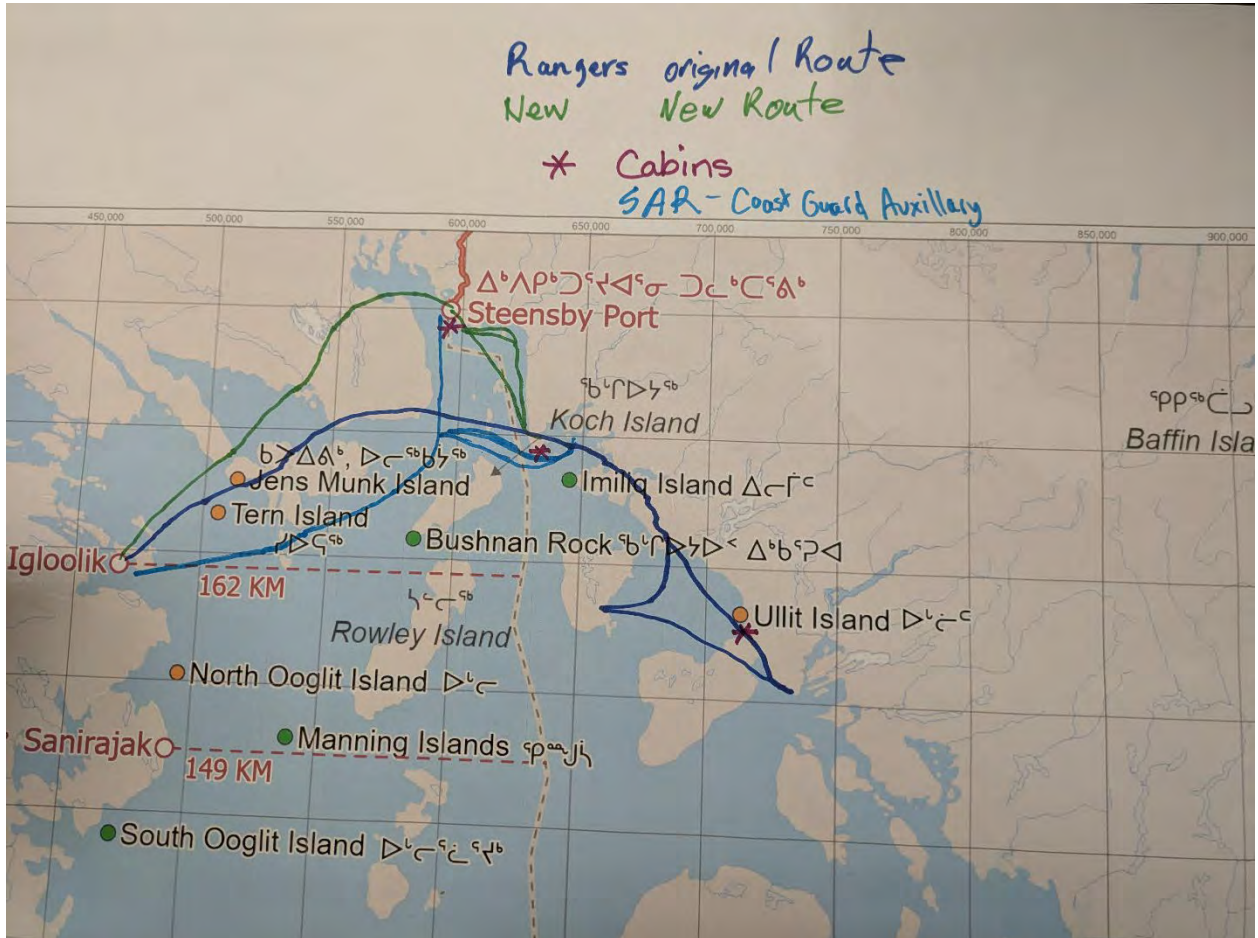 Rangers original Route
New New Route
* Cabins
SAR - Coast Guard Auxillary
450,000 500,000 550,000 600,000 650,000 700,000 750,000 800,000 850,000 900,000
Steensby Port
ᖃᒡᒋᐅᔭᖅ
Koch Island
Baffin Isla
Jens Munk Island
Imiliq Island ᐃᓕᒦᑦ
Tern Island
Bushnan Rock
Igloolik
162 KM
Rowley Island
Ullit Island ᐅᒡᓖᑦ
North Ooglit Island ᐅᒡᓕ
Sanirajak
Manning Islands
149 KM
South Ooglit Island